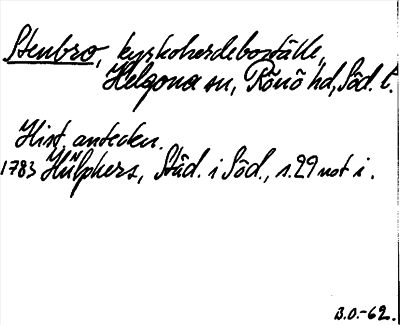 Stenbro, kyrkoherdeboställe,
Helgona sn, Rönö hd, Söd. l.
Hist. anteckn.
1783 Hülphers, Städ. i Söd., s. 29 not i.
B.O.-62.